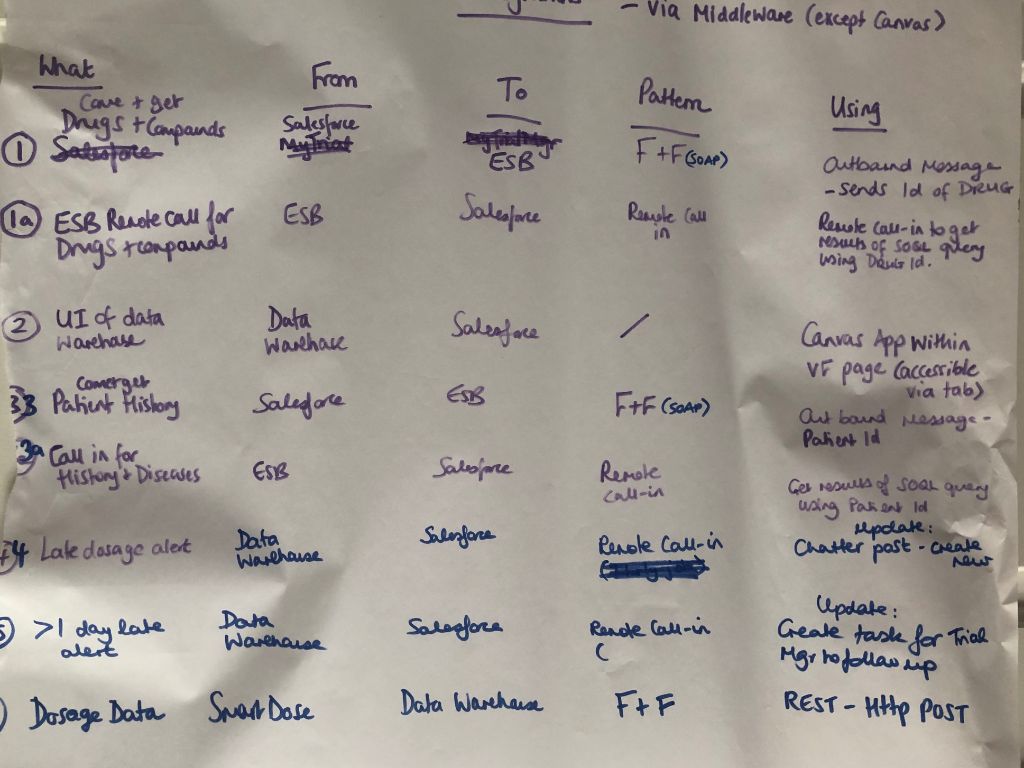 - Via Middleware (except Canvas)
What From To Pattern Using
Come + get
Drugs + Compounds
① Salesforce
Salesforce
MyTrial
MyTrialMgr
ESB
F + F (SOAP)
Outbound Message
- Sends Id of DRUG
1a ESB Remote call for
Drugs + compounds
ESB
Salesforce
Remote Call
in
Remote Call-in to get
results of SOQL query
using DRUG Id.
② UI of data
Warehouse
Data
Warehouse
Salesforce
/
Canvas App Within
VF page (accessible
via tab)
Come + get
3 Patient History
Salesforce
ESB
F+F (SOAP)
Outbound Message -
Patient Id
3a Call in for
History + Diseases
ESB
Salesforce
Remote
Call-in
Get results of SOQL query
using Patient Id
4 Late dosage alert
Data
Warehouse
Salesforce
Remote Call-in
Update:
Chatter post - create
new
5 >1 day late
alert
Data
Warehouse
Salesforce
Remote Call-in
(
Update:
Create task for Trial
Mgr to follow up
Dosage Data
Smart Dose
Data Warehouse
F + F
REST - Http POST